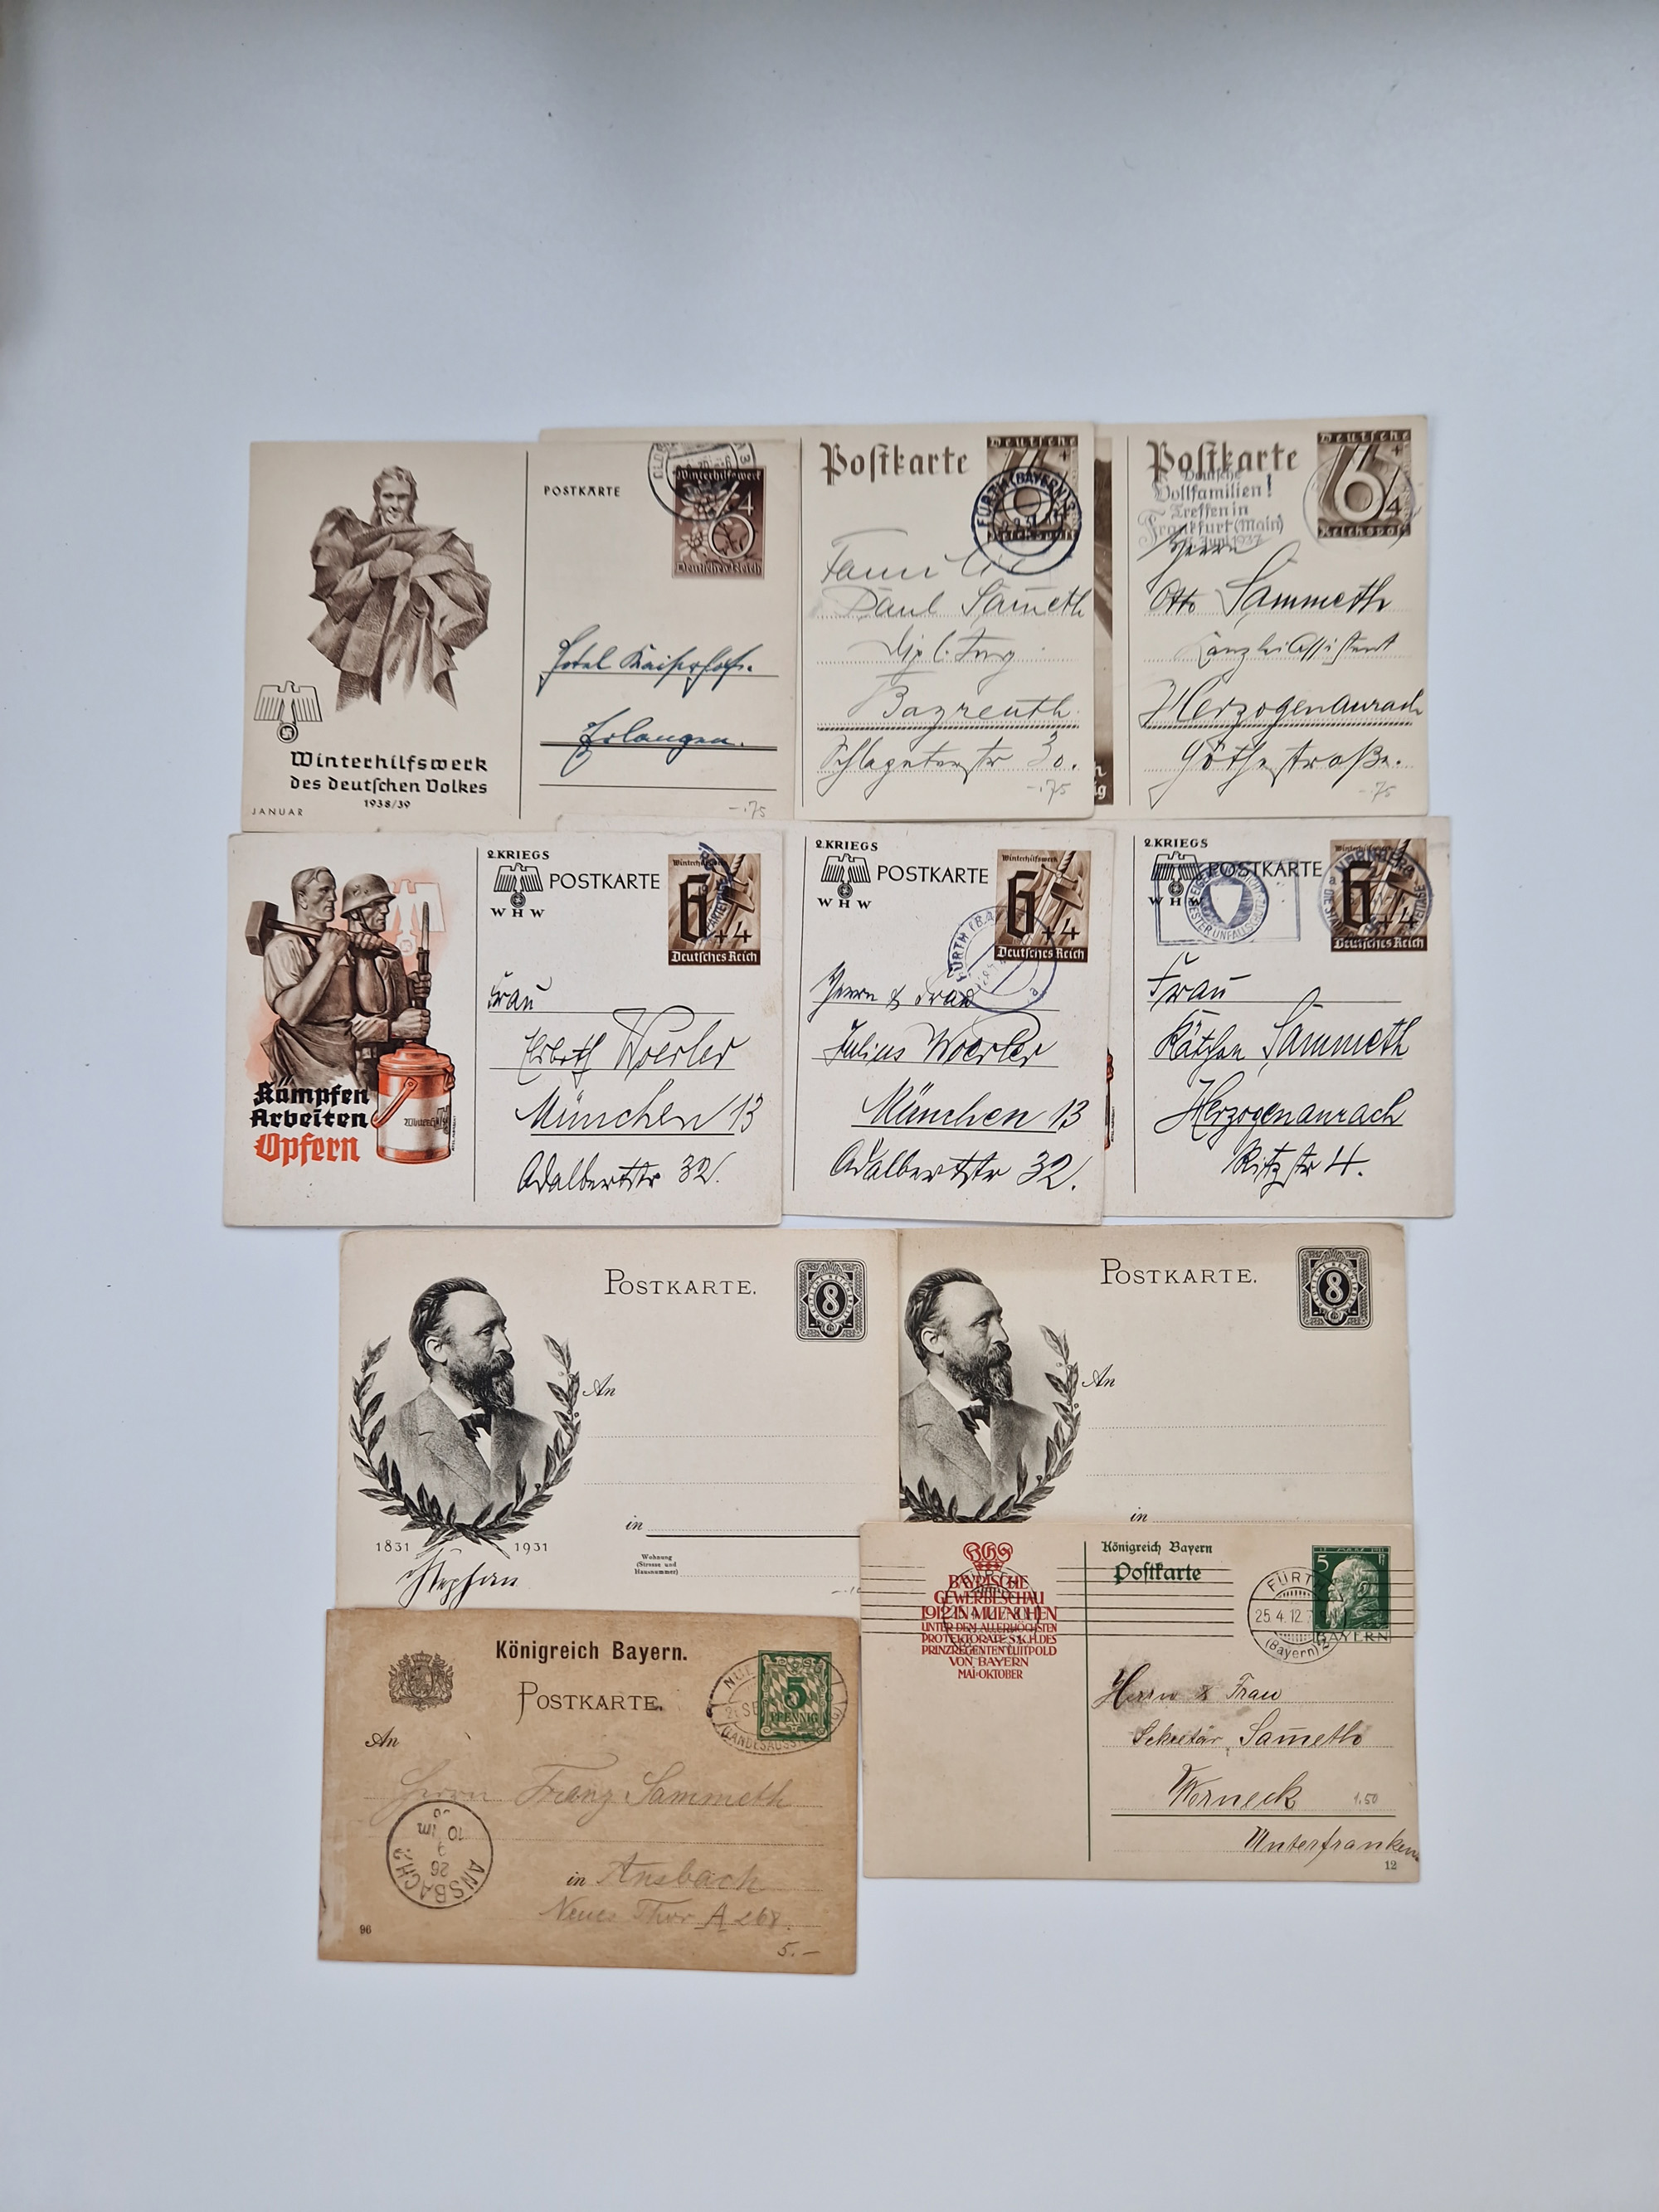 Winterhilfswerk
des deutschen Volkes
1938/39
JANUAR
POSTKARTE
Winterhilfswerk
6+4
Deutsches Reich
Hotel Kaiserhof.
Erlangen.
-.75
Postkarte
Deutsche
6+4
Reichspost
FÜRTH (BAYERN)
Familie
Paul Sam̅eth
Dipl. Ing
Bayreuth
Schlageterstr 30.
-.75
Postkarte
Deutsche
6+4
Reichspost
Deutsche
Vollfamilien!
Treffen in
Frankfurt (Main)
Juni 1937
Herrn
Otto Sammeth
Kanzleiassistent
Herzogenaurach
Götestraße.
-.75
Kämpfen
Arbeiten
Opfern
2. KRIEGS
WHW
POSTKARTE
Winterhilfswerk
6+4
Deutsches Reich
Frau
Woerler
München 13
Adalbertstr 32/.
2. KRIEGS
WHW
POSTKARTE
Winterhilfswerk
6+4
Deutsches Reich
FÜRTH (BA
Herrn & Frau
Julius Woerler
München 13
Adalbertstr 32.
2. KRIEGS
WHW
POSTKARTE
6+4
Deutsches Reich
NÜRNBERG
Frau
Käthen Sammeth
Herzogenaurach
Ritzstr 4.
POSTKARTE.
8
An
in
Wohnung
(Strasse und
Hausnummer)
1831 1931
Stephan
POSTKARTE.
8
An
in
BAYRISCHE
GEWERBESCHAU
1912 IN MUENCHEN
UNTER DEM ALLERHÖCHSTEN
PROTEKTORATE S.K.H. DES
PRINZREGENTEN LUITPOLD
VON BAYERN
MAI-OKTOBER
Königreich Bayern
Postkarte
5 Pf
BAYERN
FÜRTH
25.4.12.
(Bayern) 2
Herrn & Frau
Sekretär Sam̅eth
Werneck
1.50
Unterfranken
12
Königreich Bayern.
POSTKARTE.
5
PFENNIG
An
Herrn Franz Sammeth
in Ansbach
Neues Thor A 268.
ANSBACH
26
9
96
5.-